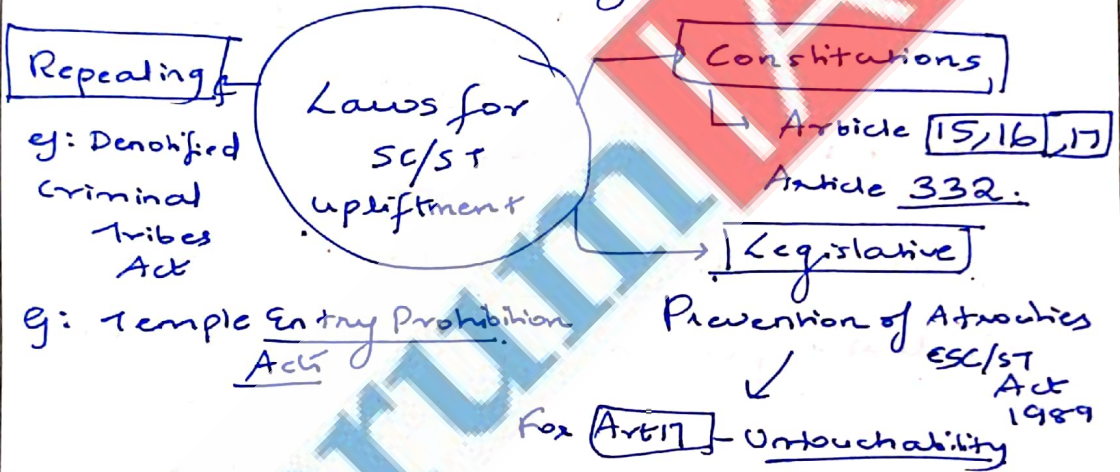 Repealing
eg: Denotified
Criminal
Tribes
Act
eg: Temple Entry Prohibition
Act
Laws for
SC/ST
upliftment
Constitutions
Article 15,16,17
Article 332.
Legislative
Prevention of Atrocities
ESC/ST
Act
1989
For Art17 - Untouchability
rum